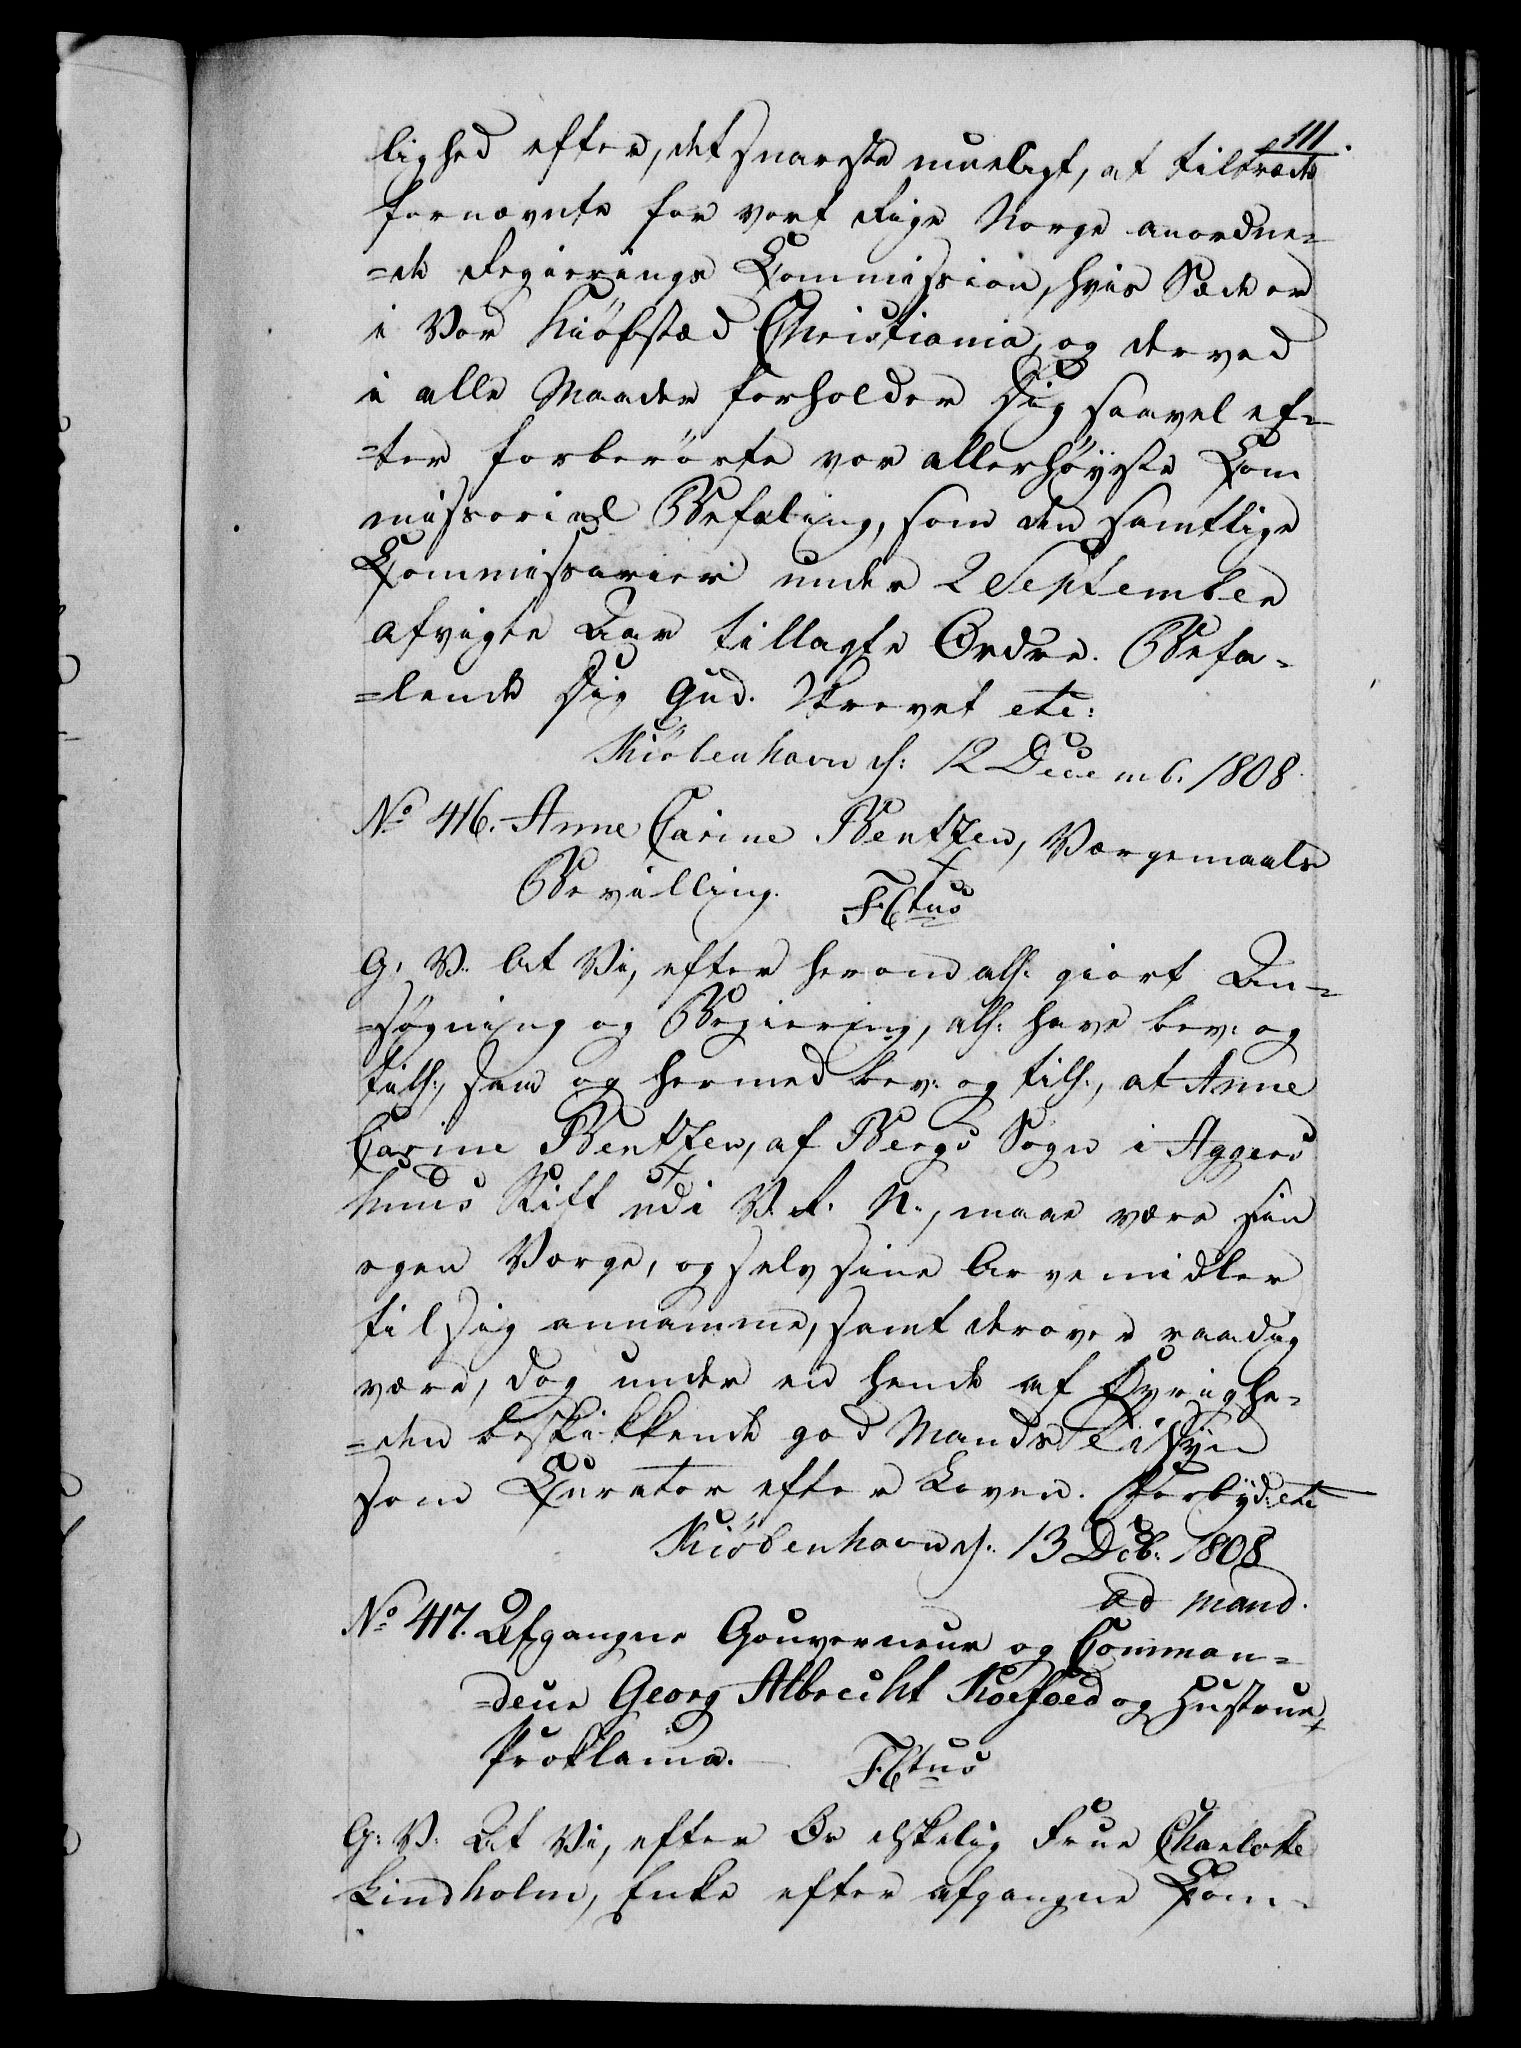 111.
lighed efter, det snareste mueligt, at tiltræde
fornævnte for vort Rige Norge anordne-
=de Regierings Commission, hvis Sæde er
i Vor Kiøbstæd Christiania, og derved
i alle Maader forholder Sig saavel ef-
=ter forberørte vor allerhøyeste Com
missorial Befaling, som den samtlige
Commissarier under 2 September
afvigte Aar tillagte Ordre. Befa-
=lende Sig Gud. Skrevet etc:
Kiöbenhavn d: 12 Decemb. 1808.
No 416. Anne Carine Bentzen, Værgemaals
Bevilling. F. Ctus
G: V. At Vi, efter herom all: giort An-
=søgning og Begiering, all: have bev: og
till:, som og hermed bev: og till:, at Anne
Carine Bentzen, af Bergs Sogn i Aggers
huus Stift udi V. R. N., maae være sin
egen Værge, og selv sine Arvemidler
til Sig annamme, samt derover raadig
være, dog under en hende af Øvrighe-
=den beskikkende god Mands Tilsyn
som Curator efter Loven. Forbyd: etc
Kiöbenhavn d: 13 Decb: 1808
ad mand.
No 417. Afgangne Gouverneur og Comman-
=deur Georg Albrecht Koefoed og Hustrue,
Proklama. F. Ctus
G: V: At Vi, efter Os elskelig Frue Charlotte
Lindholm, Enke efter afgangne Com-